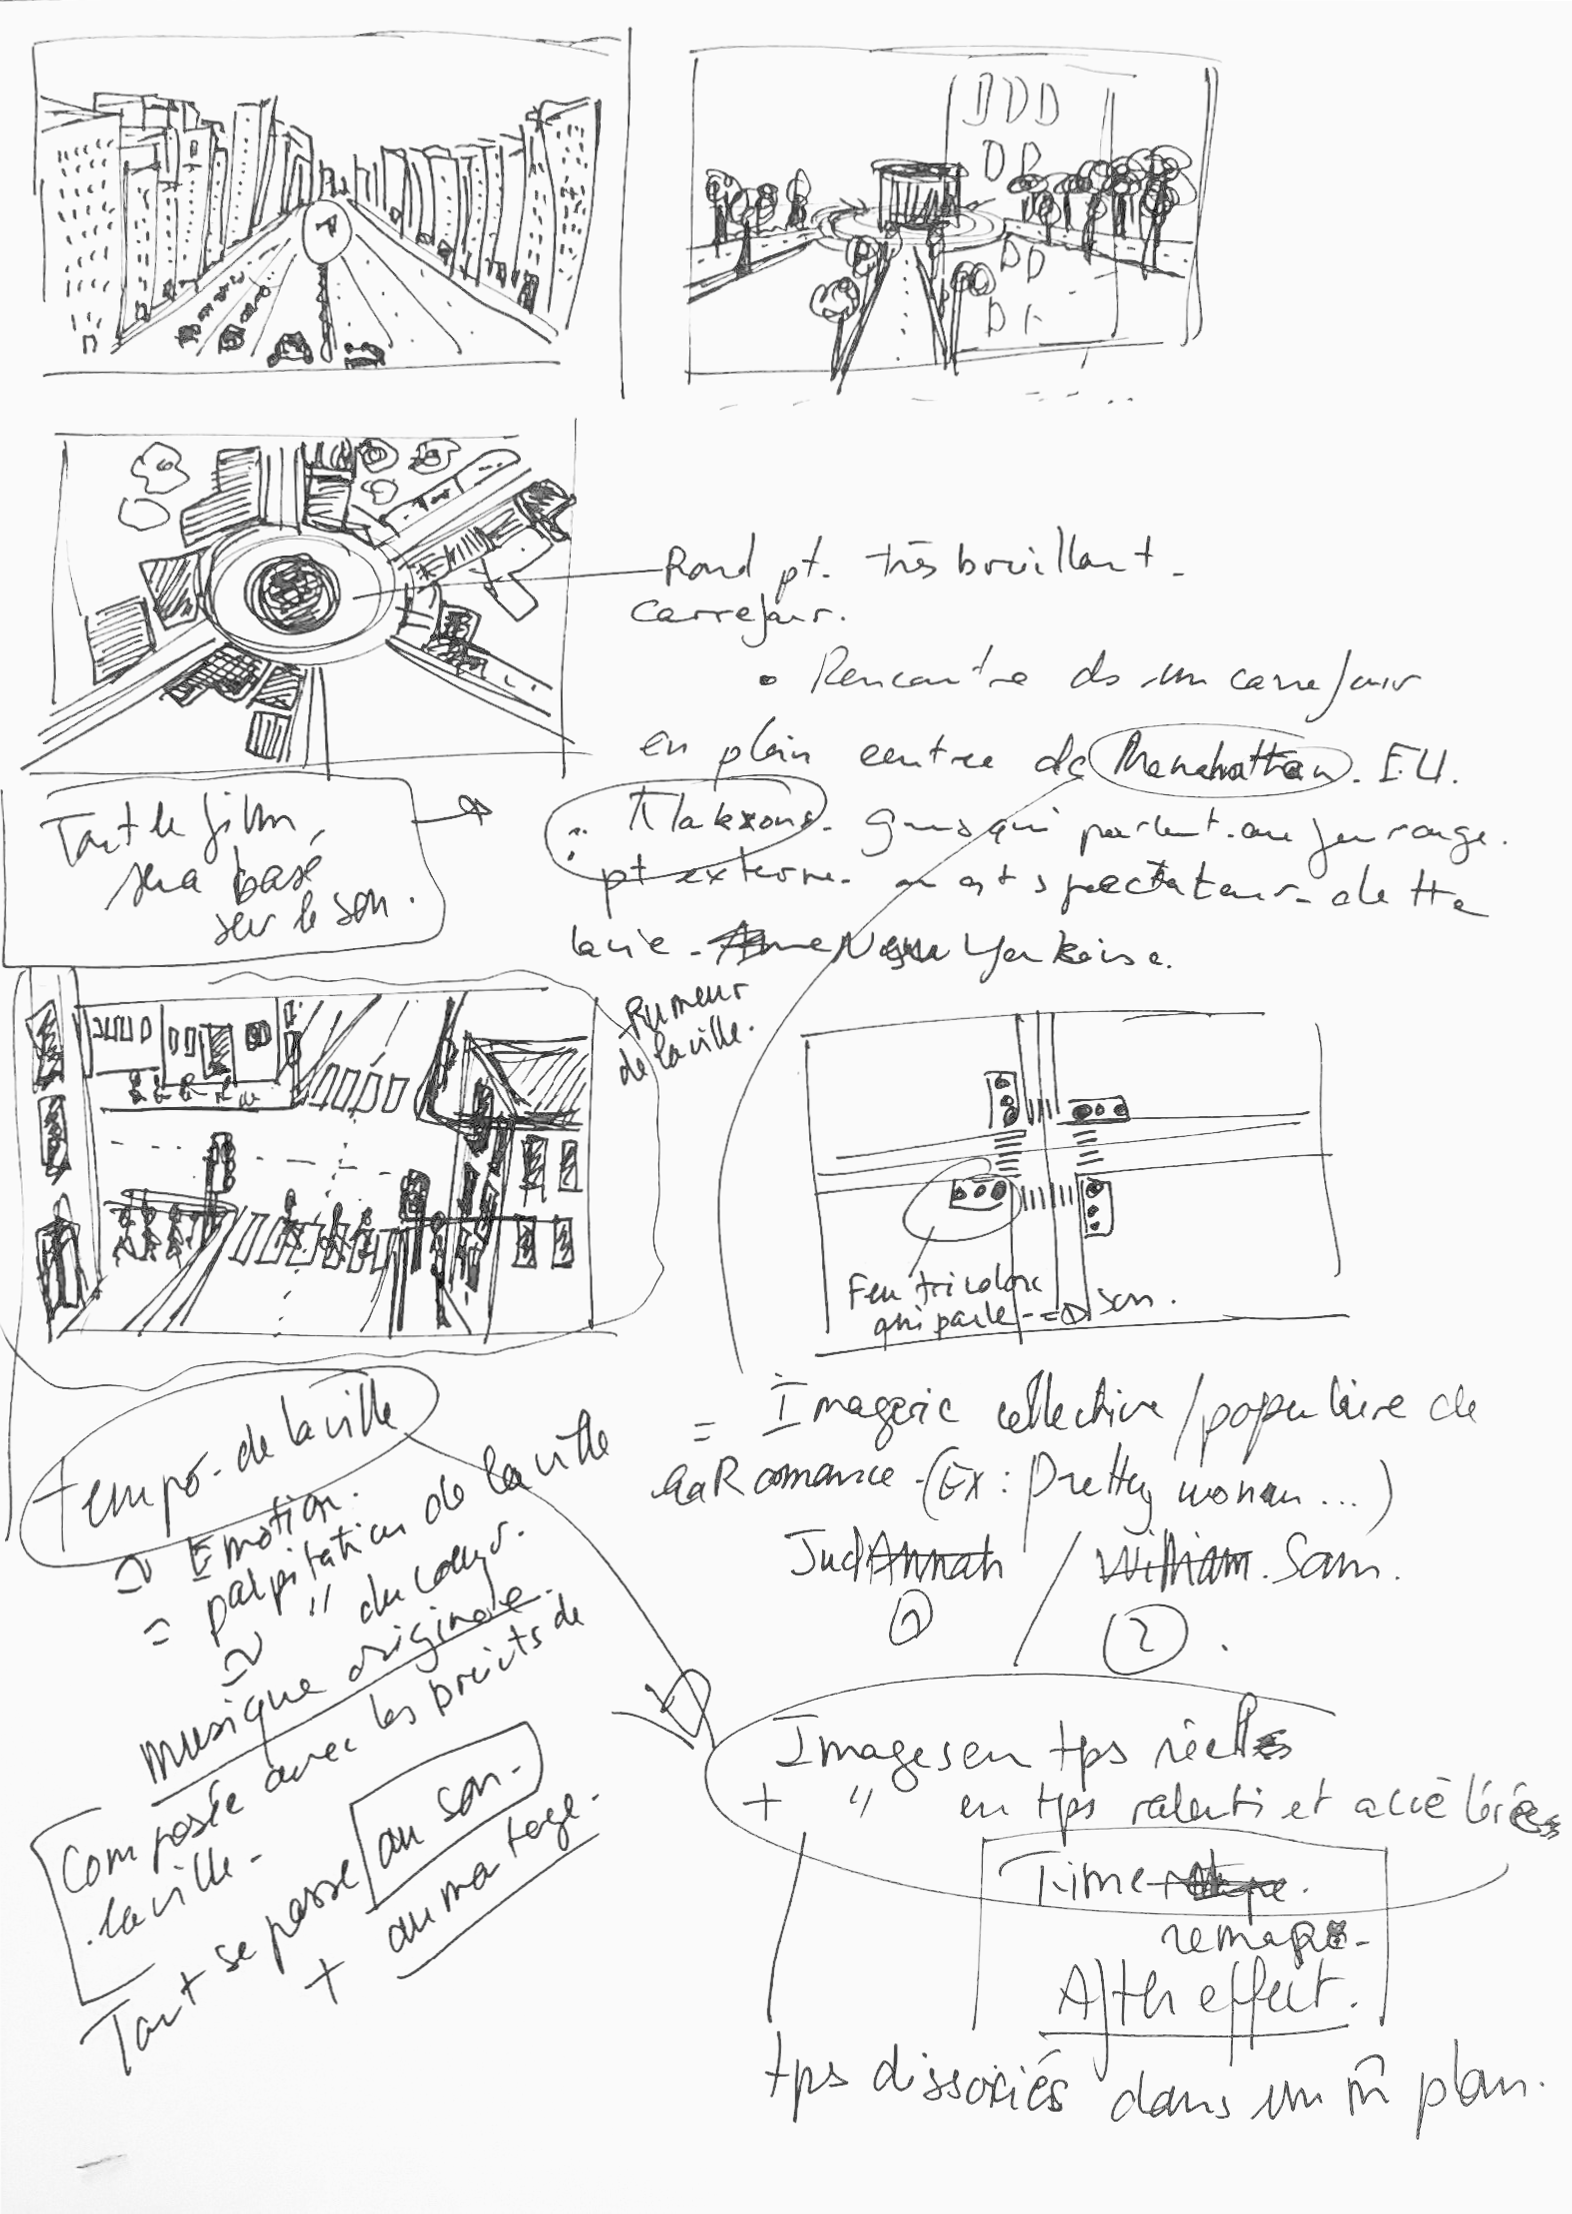 Rond pt. très bruillant.
carrefour.
• Rencontre ds un carrefour
en plein centre de Manahattan. E.U.
Tout le film,
sera basé
sur le son.
Klaxons. gens qui parlent au feu rouge.
pt externe. on est spectateur de tte
la vie New Yorkaise.
Rumeur
de la ville.
Feu tricolore
qui parle --> son.
tempo de la ville
≃ Emotion.
= palpitation de la ville
≃ " du coeur.
musique originale.
Composée avec les bruits de
la ville.
Tout se passe au son.
+ au montage.
= Imagerie collective / populaire de
la Romance. (Ex : Pretty woman ...)
Jud Annah / William. Sam.
1 2.
Images en tps réel
+ " en tps ralenti et accélérées
Time
remape.
After effect.
tps dissociés dans un m̂ plan.